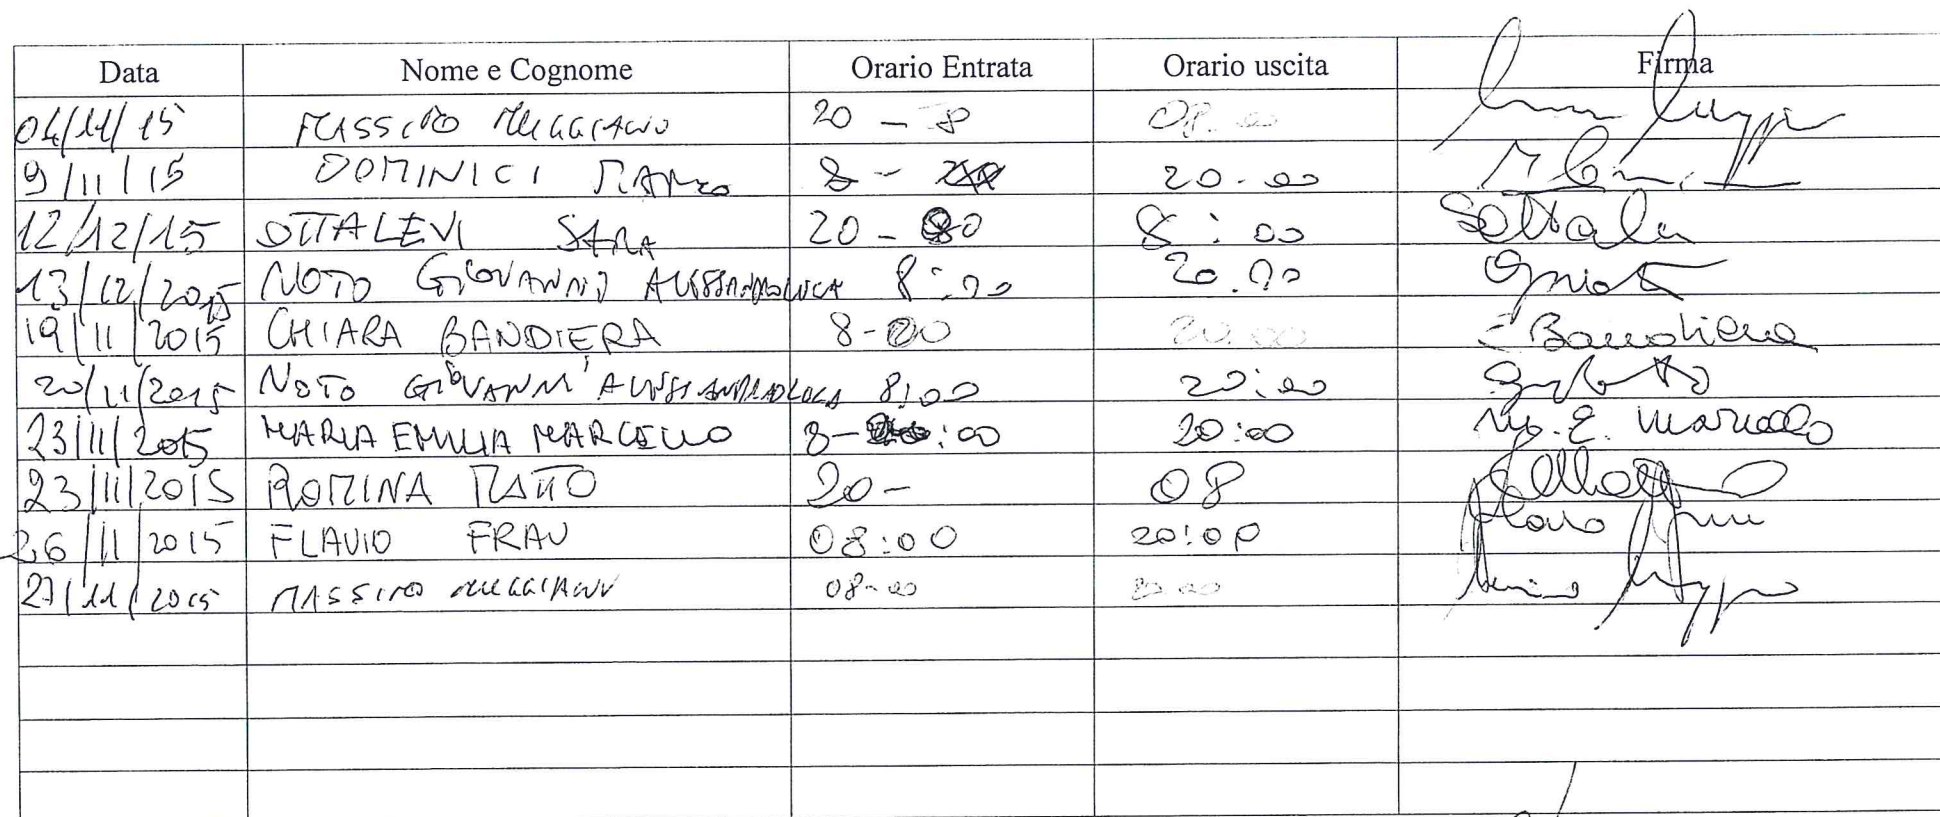 Data Nome e Cognome Orario Entrata Orario uscita Firma
04/11/15 MASSIMO MUGGIANU 20 - 8 08.00
9/11/15 DOMINICI MARCO 8 - 20.00
12/12/15 OTTALEVI SARA 20 - 8:00
13/12/2015 NOTO GIOVANNI ALESSANDROLUCA 8:00 20.00
19/11/2015 CHIARA BANDIERA 8-20 20.00 Bandiera
20/11/2015 NOTO GIOVANNI ALESSANDROLUCA 8:00 20:00
23/11/2015 MARIA EMILIA MARCELLO 8-:00 20:00 M. E. Marcello
23/11/2015 ROMINA 20- 08
26/11/2015 FLAVIO FRAU 08:00 20:00 Flavio Frau
27/11/2015 MASSIMO MUGGIANU 08-00 20.00